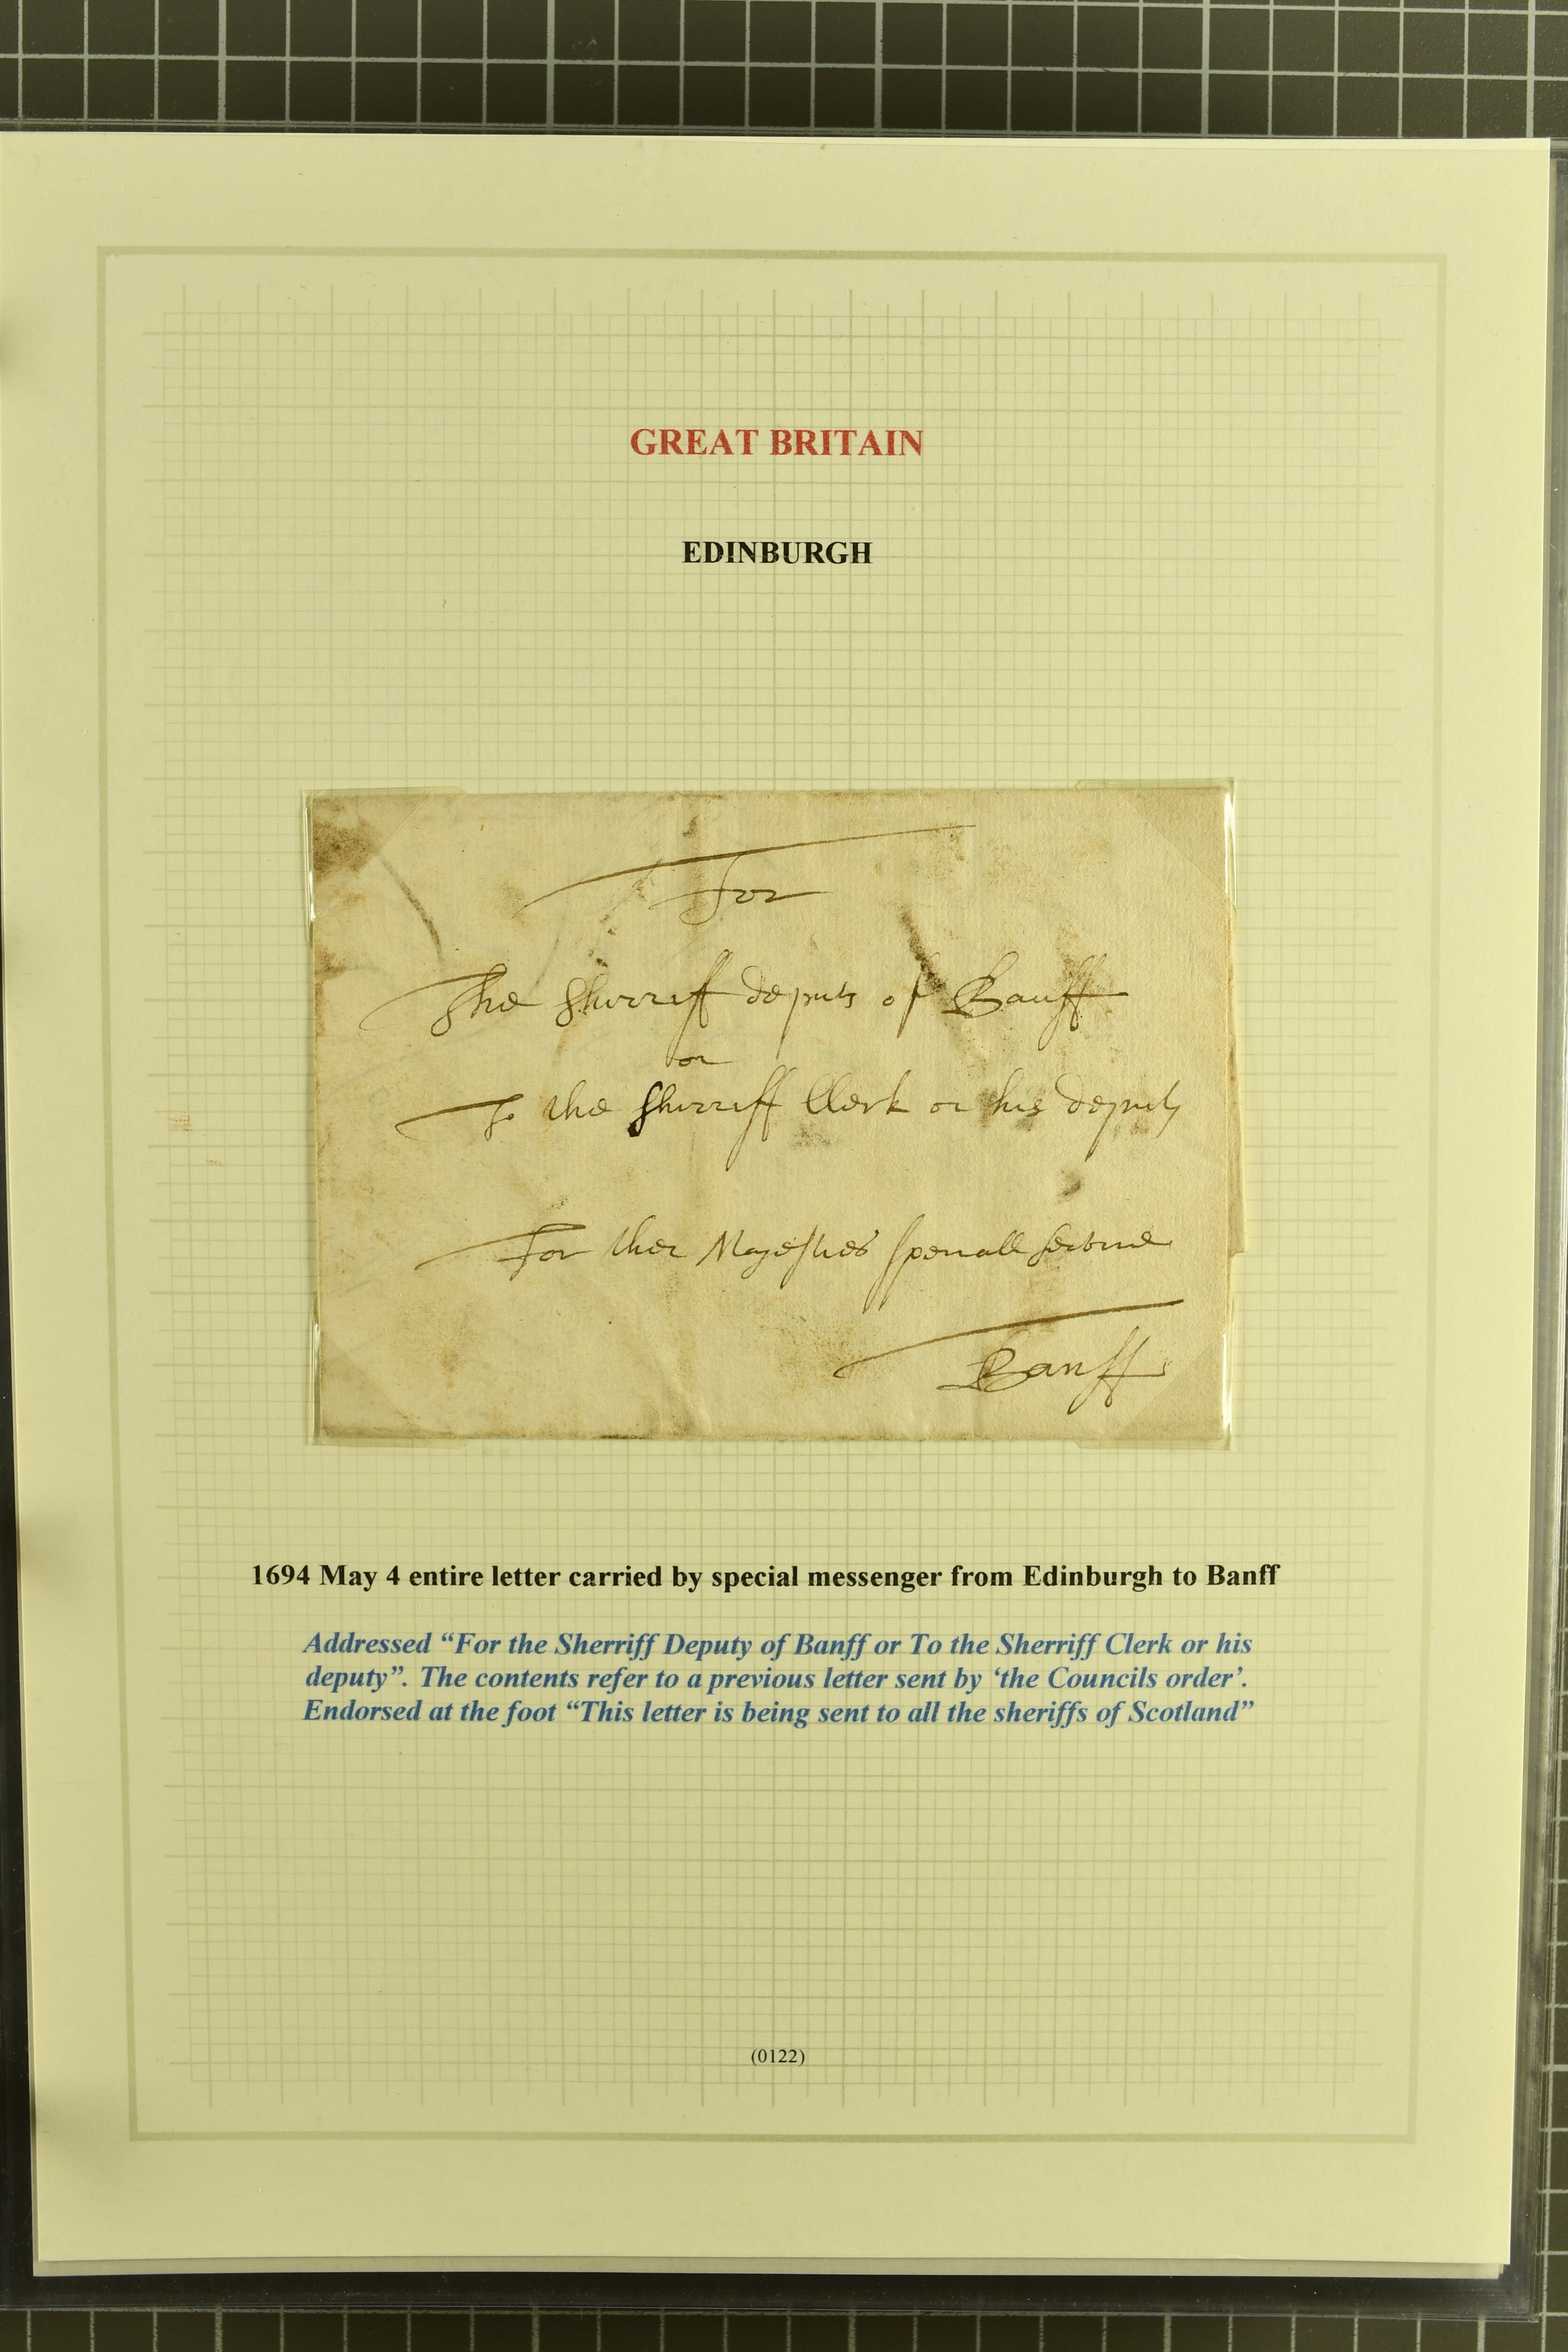 GREAT BRITAIN
EDINBURGH
For
The Shirriff deputs of Banff
or
To the Shirriff Clerk or his deputs
For ther Majesties speciall service
Banff
1694 May 4 entire letter carried by special messenger from Edinburgh to Banff
Addressed “For the Sherriff Deputy of Banff or To the Sherriff Clerk or his
deputy”. The contents refer to a previous letter sent by ‘the Councils order’.
Endorsed at the foot “This letter is being sent to all the sheriffs of Scotland”
(0122)